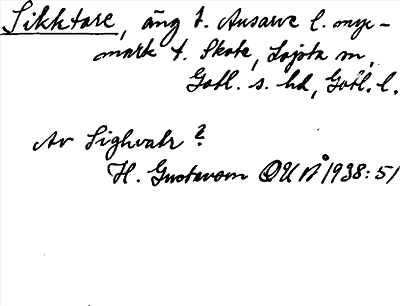 Sikhtare, äng t. Ausarve l. myr-
mark t. Skote, Lojsta sn,
Gotl. s. hd, Gotl. l.
Av Sighvatr?
H. Gustavson GUÅ 1938: 51